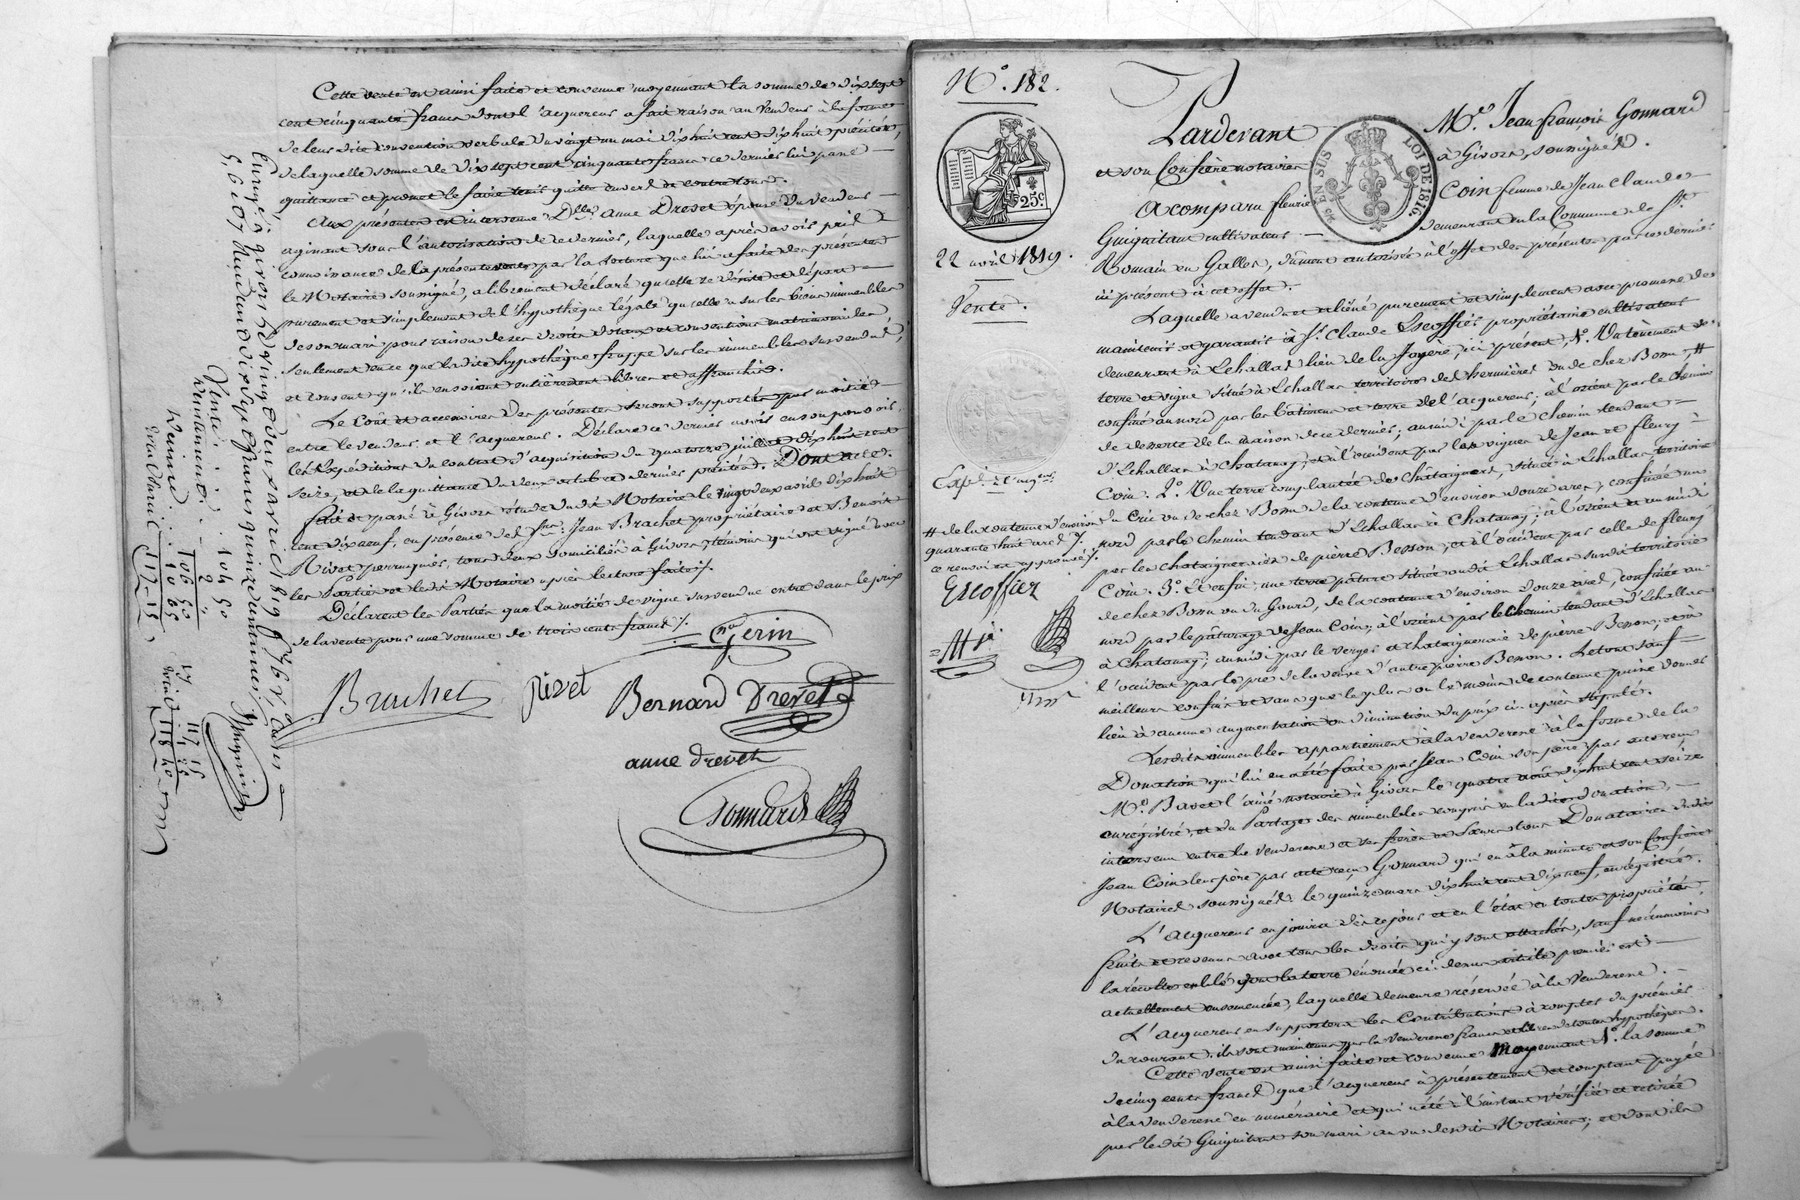 Cette vente est ainsi faite et convenue moyennant la somme de dix sept
cent cinquante francs dont l'acquereur a fait raison au vendeur à la forme
de leur dite convention verbale du vingt un mai dix huit cent dix huit précitée,
de laquelle somme de dix sept cent cinquante francs ce dernier lui passe
quittance et promet le faire tenir quitte envers et contre tous.
Aux présentes est intervenue D.lle anne Drevet épouse du vendeur
agissant sous l'autorisation de ce dernier, laquelle après avoir pris
connoissance de la présente vente par la lecture que lui a faite des présentes
le Notaire soussigné, a librement déclaré qu'elle se désiste et départ
purement et simplement de l'hypothèque légale qu'elle a sur les biens immeubles
de son mari pour raison de ses droits dotaux et conventions matrimoniales
seulement en ce que la dite hypothèque frappe sur les immeubles sus vendus,
et consent qu'ils en soient entièrement libres et affranchis.
Le Coût et accessoires des présentes seront supportés par moitié
entre le vendeur et l'acquereur. Déclare ce dernier avoir en son pouvoir
les expéditions du contrat d'acquisition du quatorze juillet dix huit cent
seize, et de la quittance du deux octobre dernier précitée. Dont acte.
fait et passé à Givors étude dudit Notaire le vingt deux avril dix huit
cent dix neuf, en présence de S.rs Jean Brachet propriétaire et Benoit
Rivet perruquier, tous deux domiciliés à Givors, témoins qui ont signé avec
les Parties et ledit Notaire après lecture faite /.
Déclarent les Parties que la moitié de vigne sus vendue entre dans le prix
de la vente pour une somme de trois cents francs /.
Gerin
Brachet
Rivet
Bernard Drevet
anne drevet
Gonnard
Enregistré à givors le vingt deux avril 1819
reçu quatre vingt dix sept francs quinze centimes
Vente . . . 104 50
106 50
10 65
117-15
117 15
118 40
N.° 182.
25c
22 avril 1819.
Vente.
EN SUS
LOI DE 1816.
Pardevant M.e Jean françois Gonnard
et son Confrère notaires à Givors, soussignés.
A comparu fleurie Coin femme de Jean Claude
Guignitant cultivateur demeurant en la Commune de St.
Romain en Galles, dument autorisée à l'effet des présentes par ce dernier
ici présent à cet effet.
Laquelle a vendu et aliéné purement et simplement avec promesse de
maintenir et garantir à Sr. Claude Escoffier propriétaire cultivateur
demeurant à Echallas lieu de la Joyere, ici présent, 1.° Un tènement de
terre et vigne situé à Echallas territoire des hernières ou de chez Bonu, #
confiné au nord par les bâtiments et terre de l'acquereur; à l'orient par le chemin
de desserte de la maison de ce dernier; au midi par le chemin tendant
d'Echallas à Chatanay; et à l'occident par les vignes de Jean et fleury
Coin. 2.° Une terre complantée de Chataigners, située à Echallas territoire
du Cric ou de chez Bonu de la contenue d'environ douze ares, confinée au
nord par le chemin tendant d'Echallas à Chatanay; à l'orient et au midi
par les chataigneraies de pierre Besson; et à l'occident par celle de fleury
Coin. 3.° Et enfin une terre pâture située audit Echallas susdit territoire
de chez Bonu ou du Gourd, de la contenue d'environ douze ares, confinée au
nord par le pâturage de Jean Coin; à l'orient par le chemin tendant d'Echallas
à Chatanay; au midi par le verger et chataigneraie de pierre Besson; et à
l'occident par le pré de la veuve d'autre pierre Besson. Le tout sauf
meilleurs confins et sans que le plus ou le moins de contenue puisse donner
lieu à aucune augmentation ou diminution du prix ci-après stipulé.
Lesdits immeubles appartiennent à la venderesse à la forme de la
Donation qui lui en a été faite par Jean Coin son père par acte reçu
M.e Bavet l'aîné notaire à Givors le quatre août dix huit cent seize
enregistré, et du Partage des immeubles compris en la dite donation,
intervenu entre la venderesse et ses frères et sœurs tous Donataires dudit
Jean Coin leur père par acte reçu Gonnard qui en a la minute et son Confrère
Notaires soussignés le quinze mars dix huit cent dix neuf, enregistré.
L'acquereur en jouira dès ce jour et en l'état en toutes propriétés,
fruits et revenus avec tous les droits qui y sont attachés, sauf néanmoins
la récolte en blé dont la terre énoncée ci-dessus article premier est
actuellement ensemencée, laquelle demeure réservée à la Venderesse.
L'acquereur en supportera les Contributions à comptes du premier
du courant. ils sont maintenus par la venderesse francs et libres de toutes hypothèques.
Cette vente est ainsi faite et convenue moyennant 1.° la somme
de cinq cents francs que l'acquereur a présentement et comptant payée
à la venderesse en numéraire et qui a été à l'instant vérifiée et retirée
par ledit Guignitant son mari au vu desdits Notaires; et dont ils
# de la contenue d'environ
quarante huit ares /.
ce renvoi est approuvé /.
Escoffier